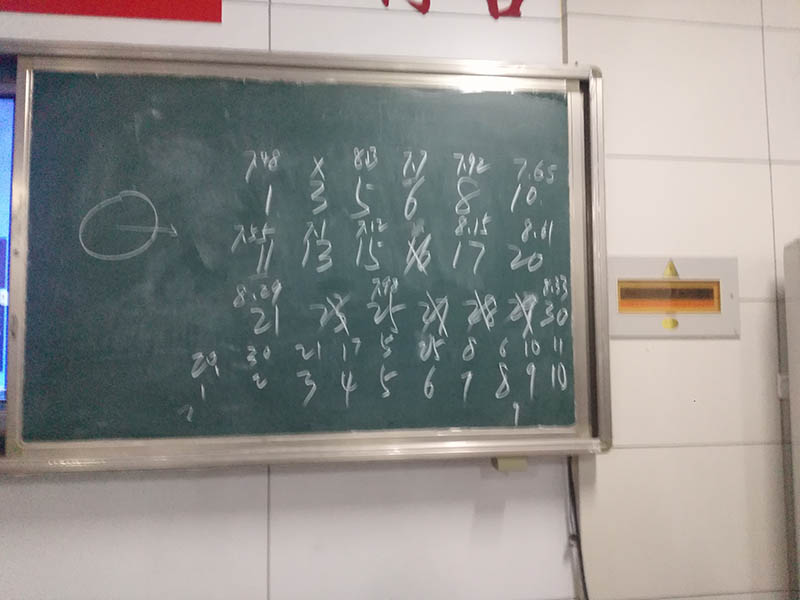 7.48 x 8.13 7.7 7.92 7.65
1 3 5 6 8 10
7.55 7.1 7.12 8.15 8.61
11 13 15 17 20
8.29 8.33
21 25 30
20 30 21 17 5 25 8 6 10 11
1 2 3 4 5 6 7 8 9 10